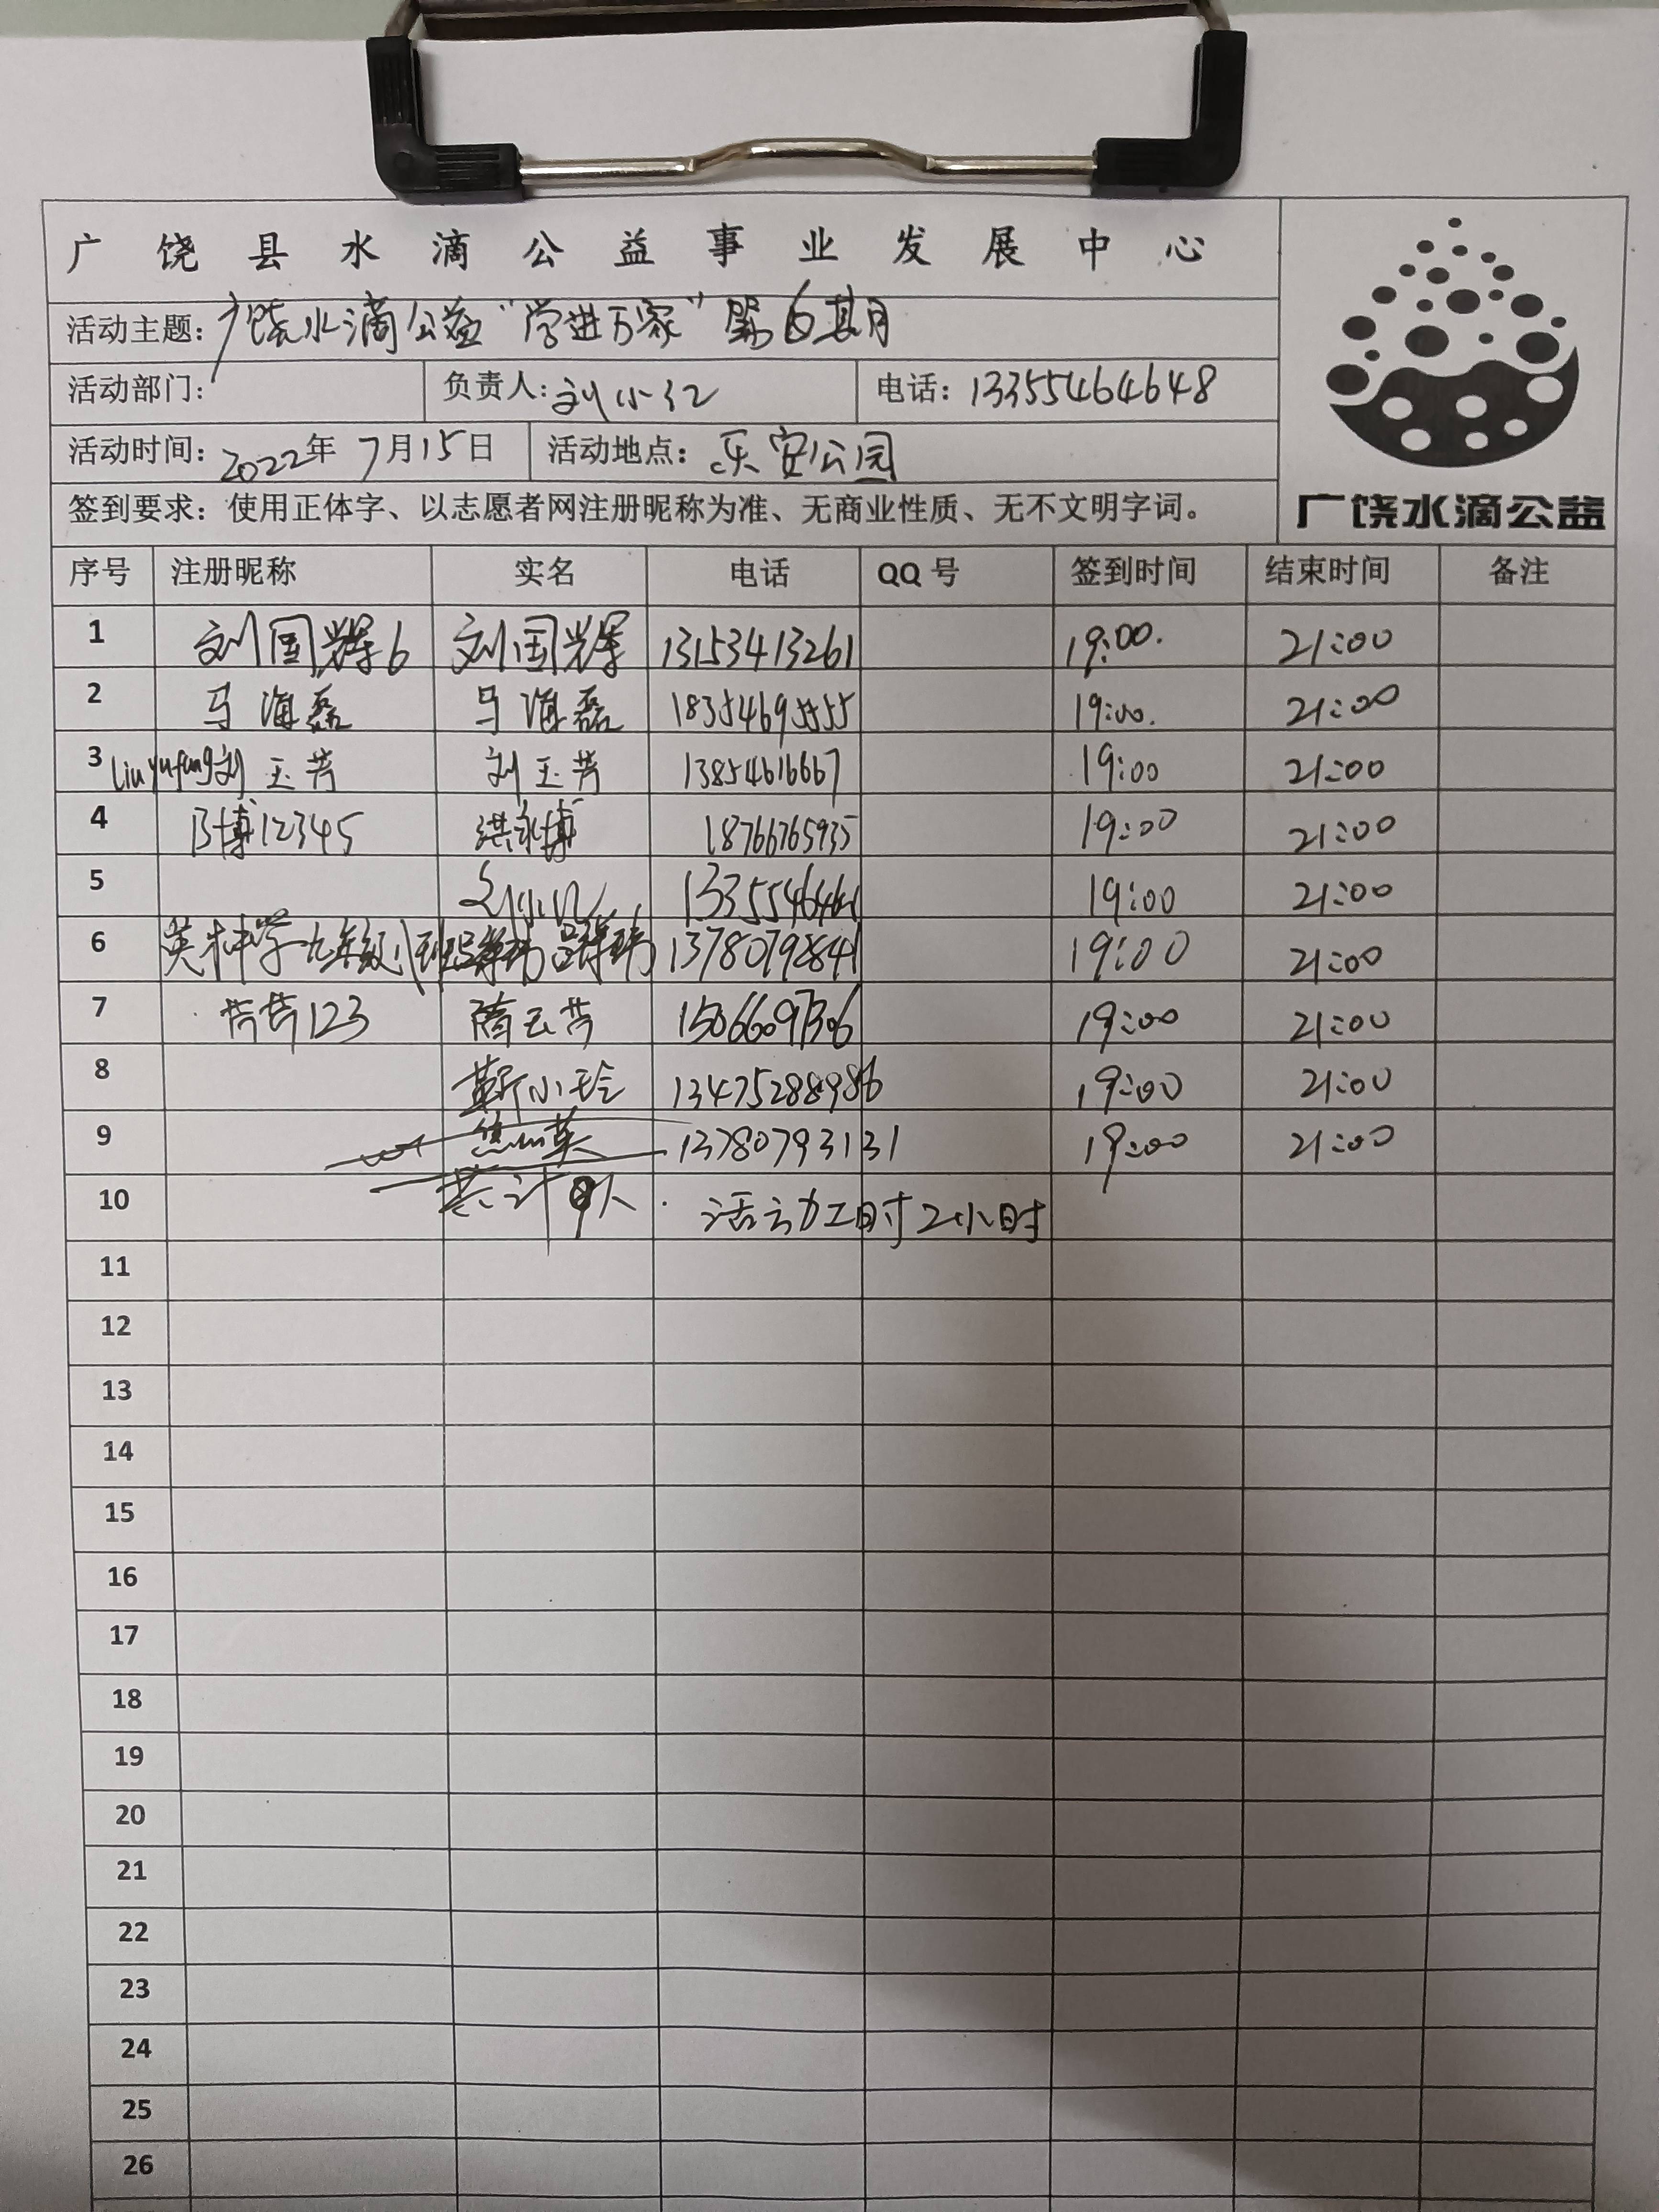 广饶县水滴公益事业发展中心
活动主题：广饶水滴公益“学进万家”第6期
活动部门： 负责人：刘小红 电话：13355464648
活动时间：2022年7月15日 活动地点：乐安公园
签到要求：使用正体字、以志愿者网注册昵称为准、无商业性质、无不文明字词。
广饶水滴公益
序号 注册昵称 实名 电话 QQ号 签到时间 结束时间 备注
1 刘国辉6 刘国辉 13153413261 19:00. 21:00
2 马海磊 马海磊 18354695555 19:00. 21:00
3 liuyufang刘玉芳 刘玉芳 13854616667 19:00 21:00
4 博12345 洪永博 18766765935 19:00 21:00
5 刘小红 19:00 21:00
6 英才中学九年级 13780792841 19:00 21:00
7 芳芳123 隋云芳 15066097306 19:00 21:00
8 靳小玲 13475288986 19:00 21:00
9 13780793131 19:00 21:00
10 共计9人. 活动工时2小时
11
12
13
14
15
16
17
18
19
20
21
22
23
24
25
26